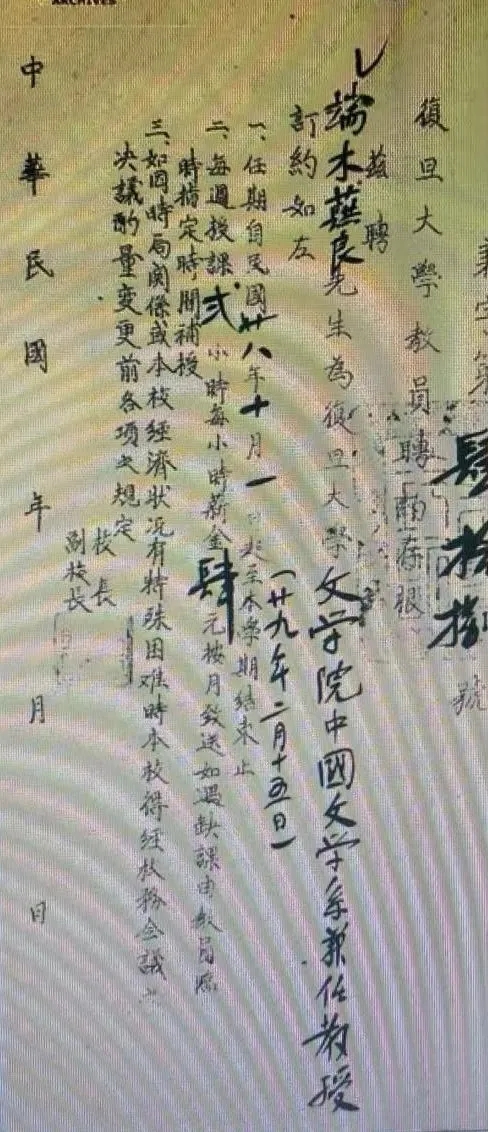 ARCHIVES
兼字第肆拾捌號
復旦大學教員聘約存根
茲聘
端木蕻良先生為復旦大學文學院中國文學系兼任教授
訂約如左
一、任期自民國廿八年十月一日起至本學期結束止
(廿九年二月十五日)
二、每週授課弍小時每小時薪金肆元按月致送如遇缺課由教員臨
時指定時間補授
三、如因時局関係或本校經濟狀况有特殊困难時本校得經校務会議之
决議酌量变更前各項之規定
校長
副校長
中華民國 年 月 日